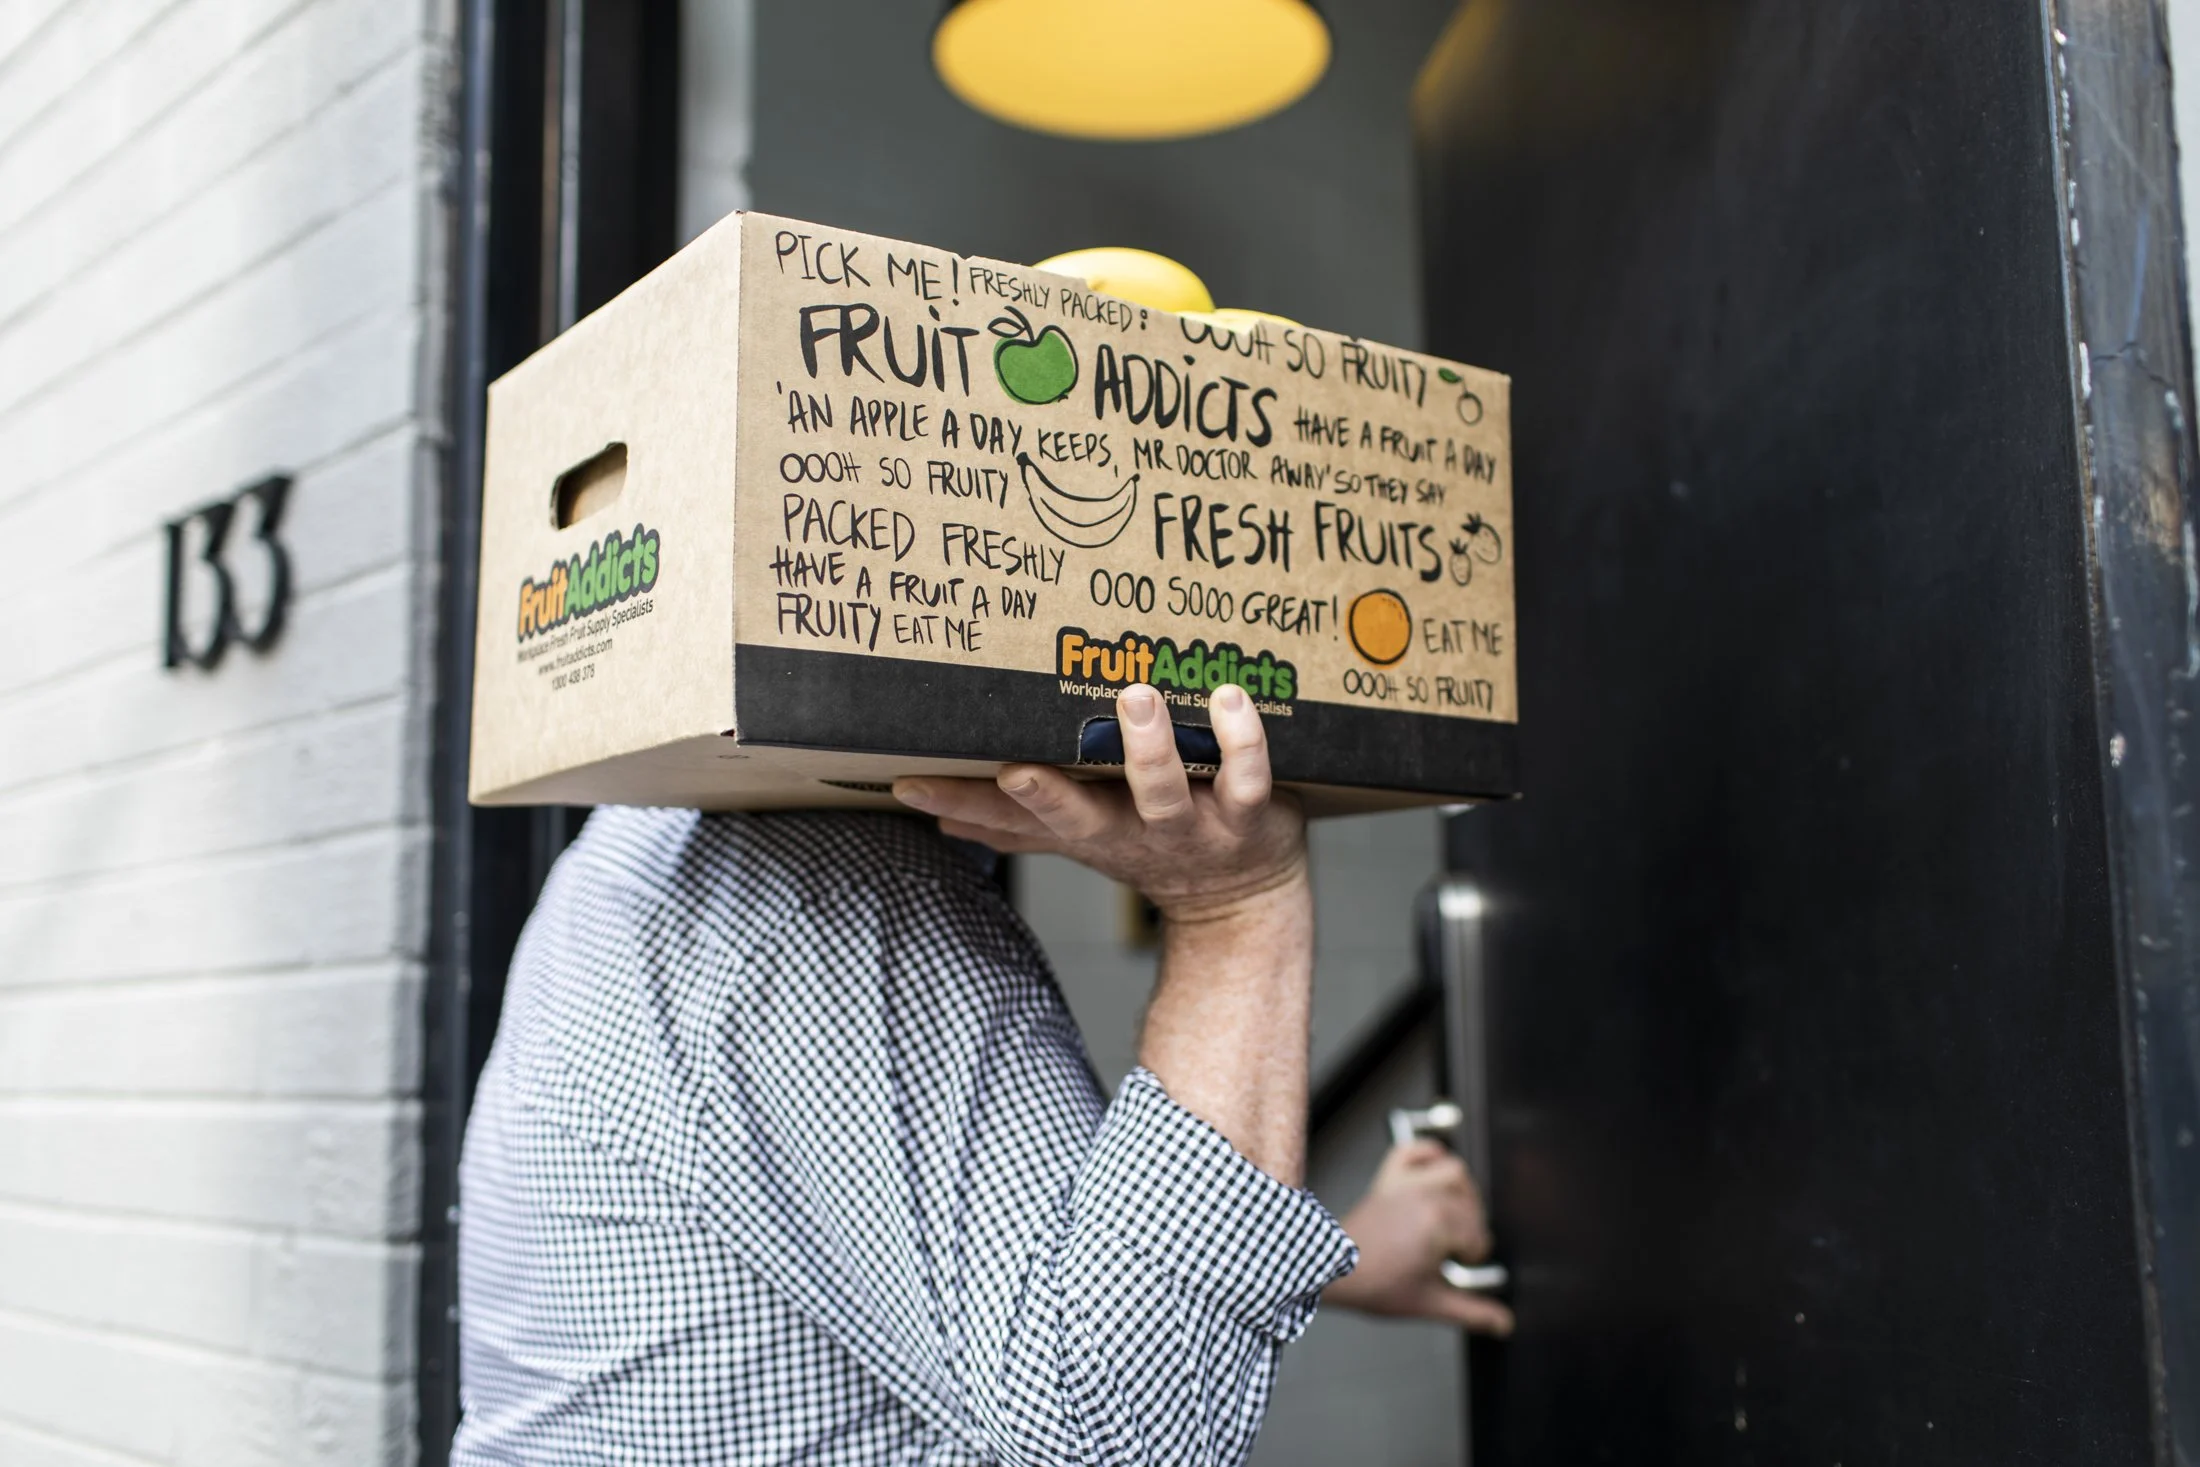 133
PICK ME! FRESHLY PACKED:
OOOH SO FRUITY
FRUiT ADDiCTS
'AN APPLE A DAY KEEPS, MR DOCTOR AWAY' SO THEY SAY
HAVE A FRUIT A DAY
OOOH SO FRUITY
FRESH FRUITS
PACKED FRESHLY
HAVE A FRUIT A DAY
OOO SOOO GREAT!
EAT ME
FRUITY EAT ME
OOOH SO FRUITY
FruitAddicts
Workplace Fruit
FruitAddicts
Workplace Fresh Fruit Supply Specialists
www.fruitaddicts.com
1300 438 378